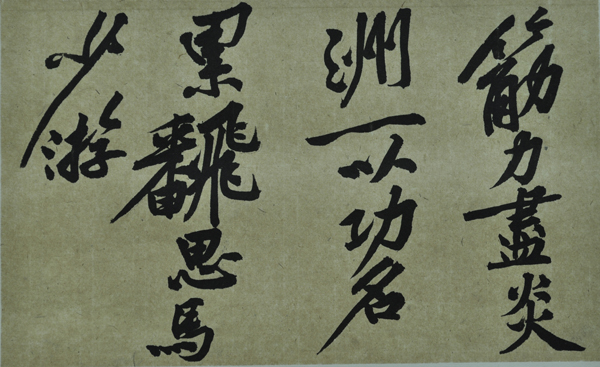 筋力盡炎
洲一以功名
累飜思馬
少游